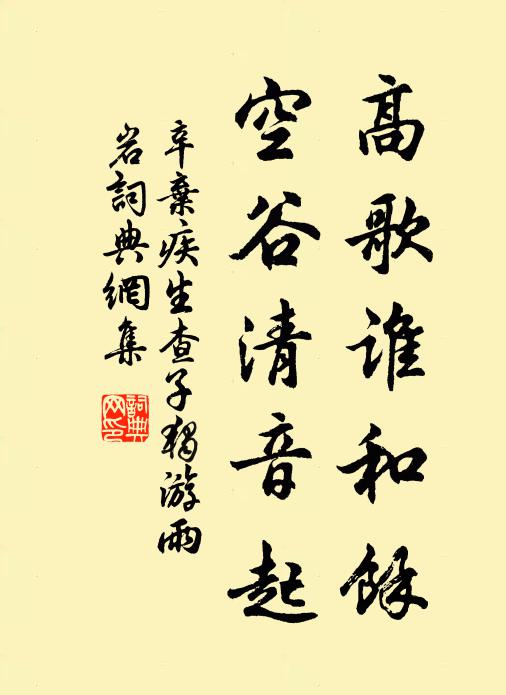 高歌誰和餘
空谷清音起
辛棄疾生查子獨游雨
岩詞典網集
詞典
网印